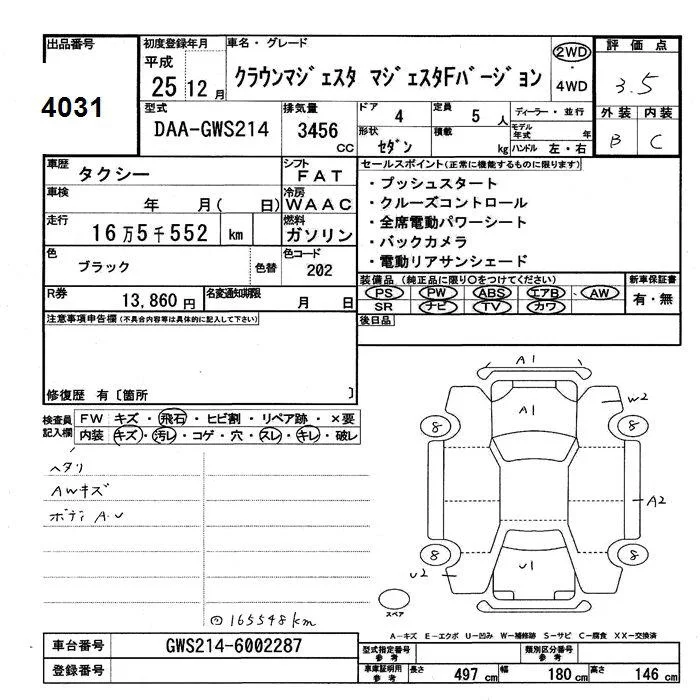 出品番号
4031
初度登録年月
平成
25 12月
車名・グレード
クラウンマジェスタ マジェスタFバージョン
2WD
・
4WD
評価点
3.5
外装 内装
B C
型式
DAA-GWS214
排気量
3456
CC
ドア 4
定員 5 人
ディーラー・並行
モデル年式 年
形状 セダン
積載 kg
ハンドル 左・右
車歴 タクシー
シフト FAT
車検 年 月( 日)
冷房 WAAC
走行 16万5千552 km
燃料 ガソリン
色 ブラック
色替
色コード 202
R券 13,860円
名変通知期限 月 日
セールスポイント(正常に機能するものに限ります)
・プッシュスタート
・クルーズコントロール
・全席電動パワーシート
・バックカメラ
・電動リアサンシェード
装備品(純正品に限り○をつけてください)
PS PW ABS エアB AW
SR ナビ TV カワ
新車保証書
有・無
後日品
注意事項申告欄(不具合内容等は具体的に記入して下さい)
修復歴 有〔箇所 〕
検査員
記入欄
FW キズ・飛石・ヒビ割・リペア跡・×要
内装 キズ・汚レ・コゲ・穴・スレ・キレ・破レ
ヘタリ
AWキズ
ボディA.U
⊙165548km
A1
A1
W2
8
8
A2
8
8
U1
U2
スペア
A-キズ E-エクボ U-凹み W-補修跡 S-サビ C-腐食 XX-交換済
車台番号 GWS214-6002287
登録番号
型式指定番号
参考
類別区分番号
参考
車庫証明用
参考
長さ 497 cm 幅 180 cm 高さ 146 cm